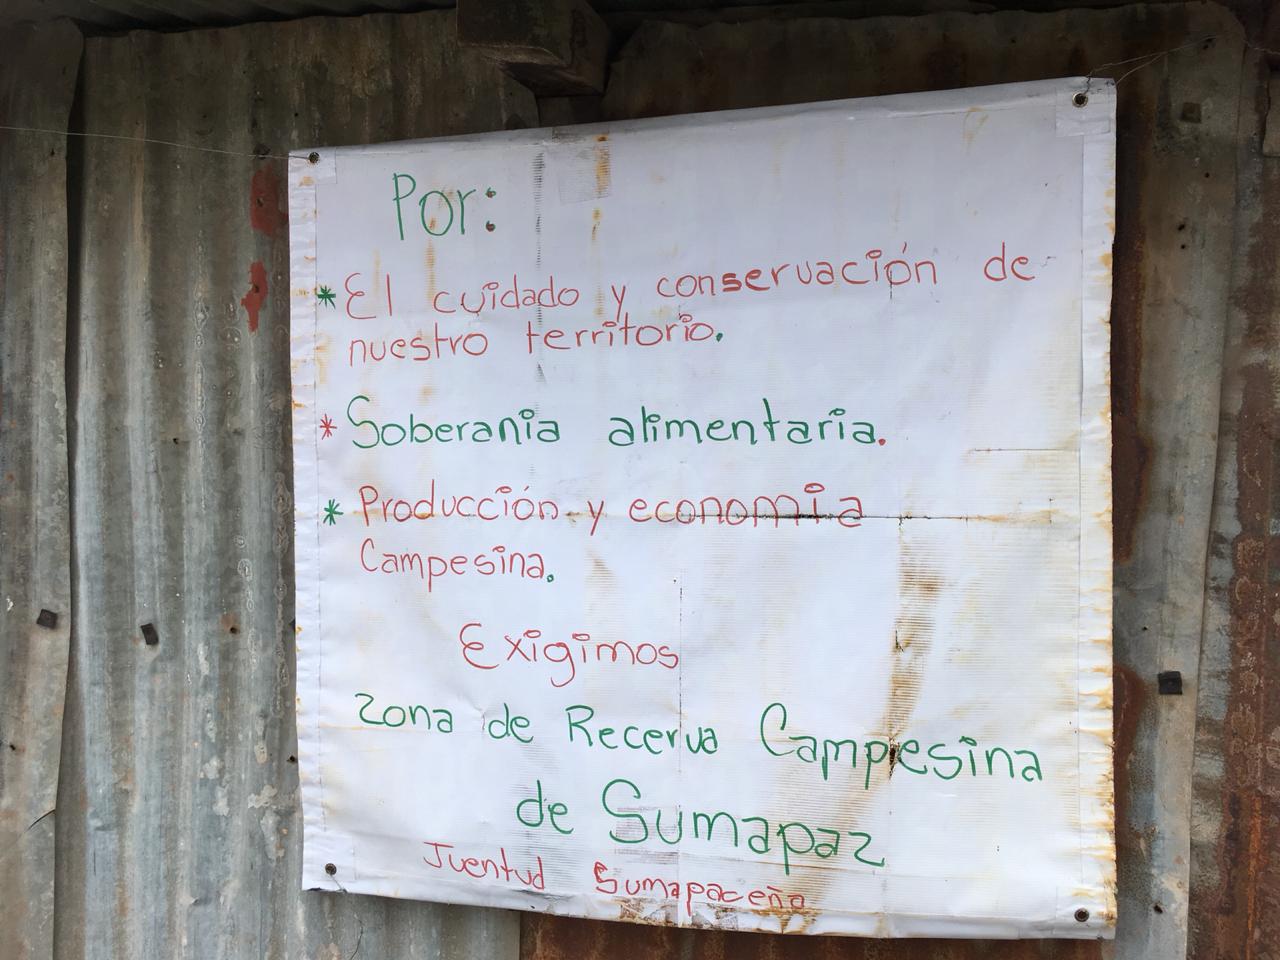 Por:
* El cuidado y conservación de
nuestro territorio.
* Soberania alimentaria.
* Producción y economia
Campesina.
Exigimos
Zona de Recerva Campesina
de Sumapaz
Juventud Sumapaceña